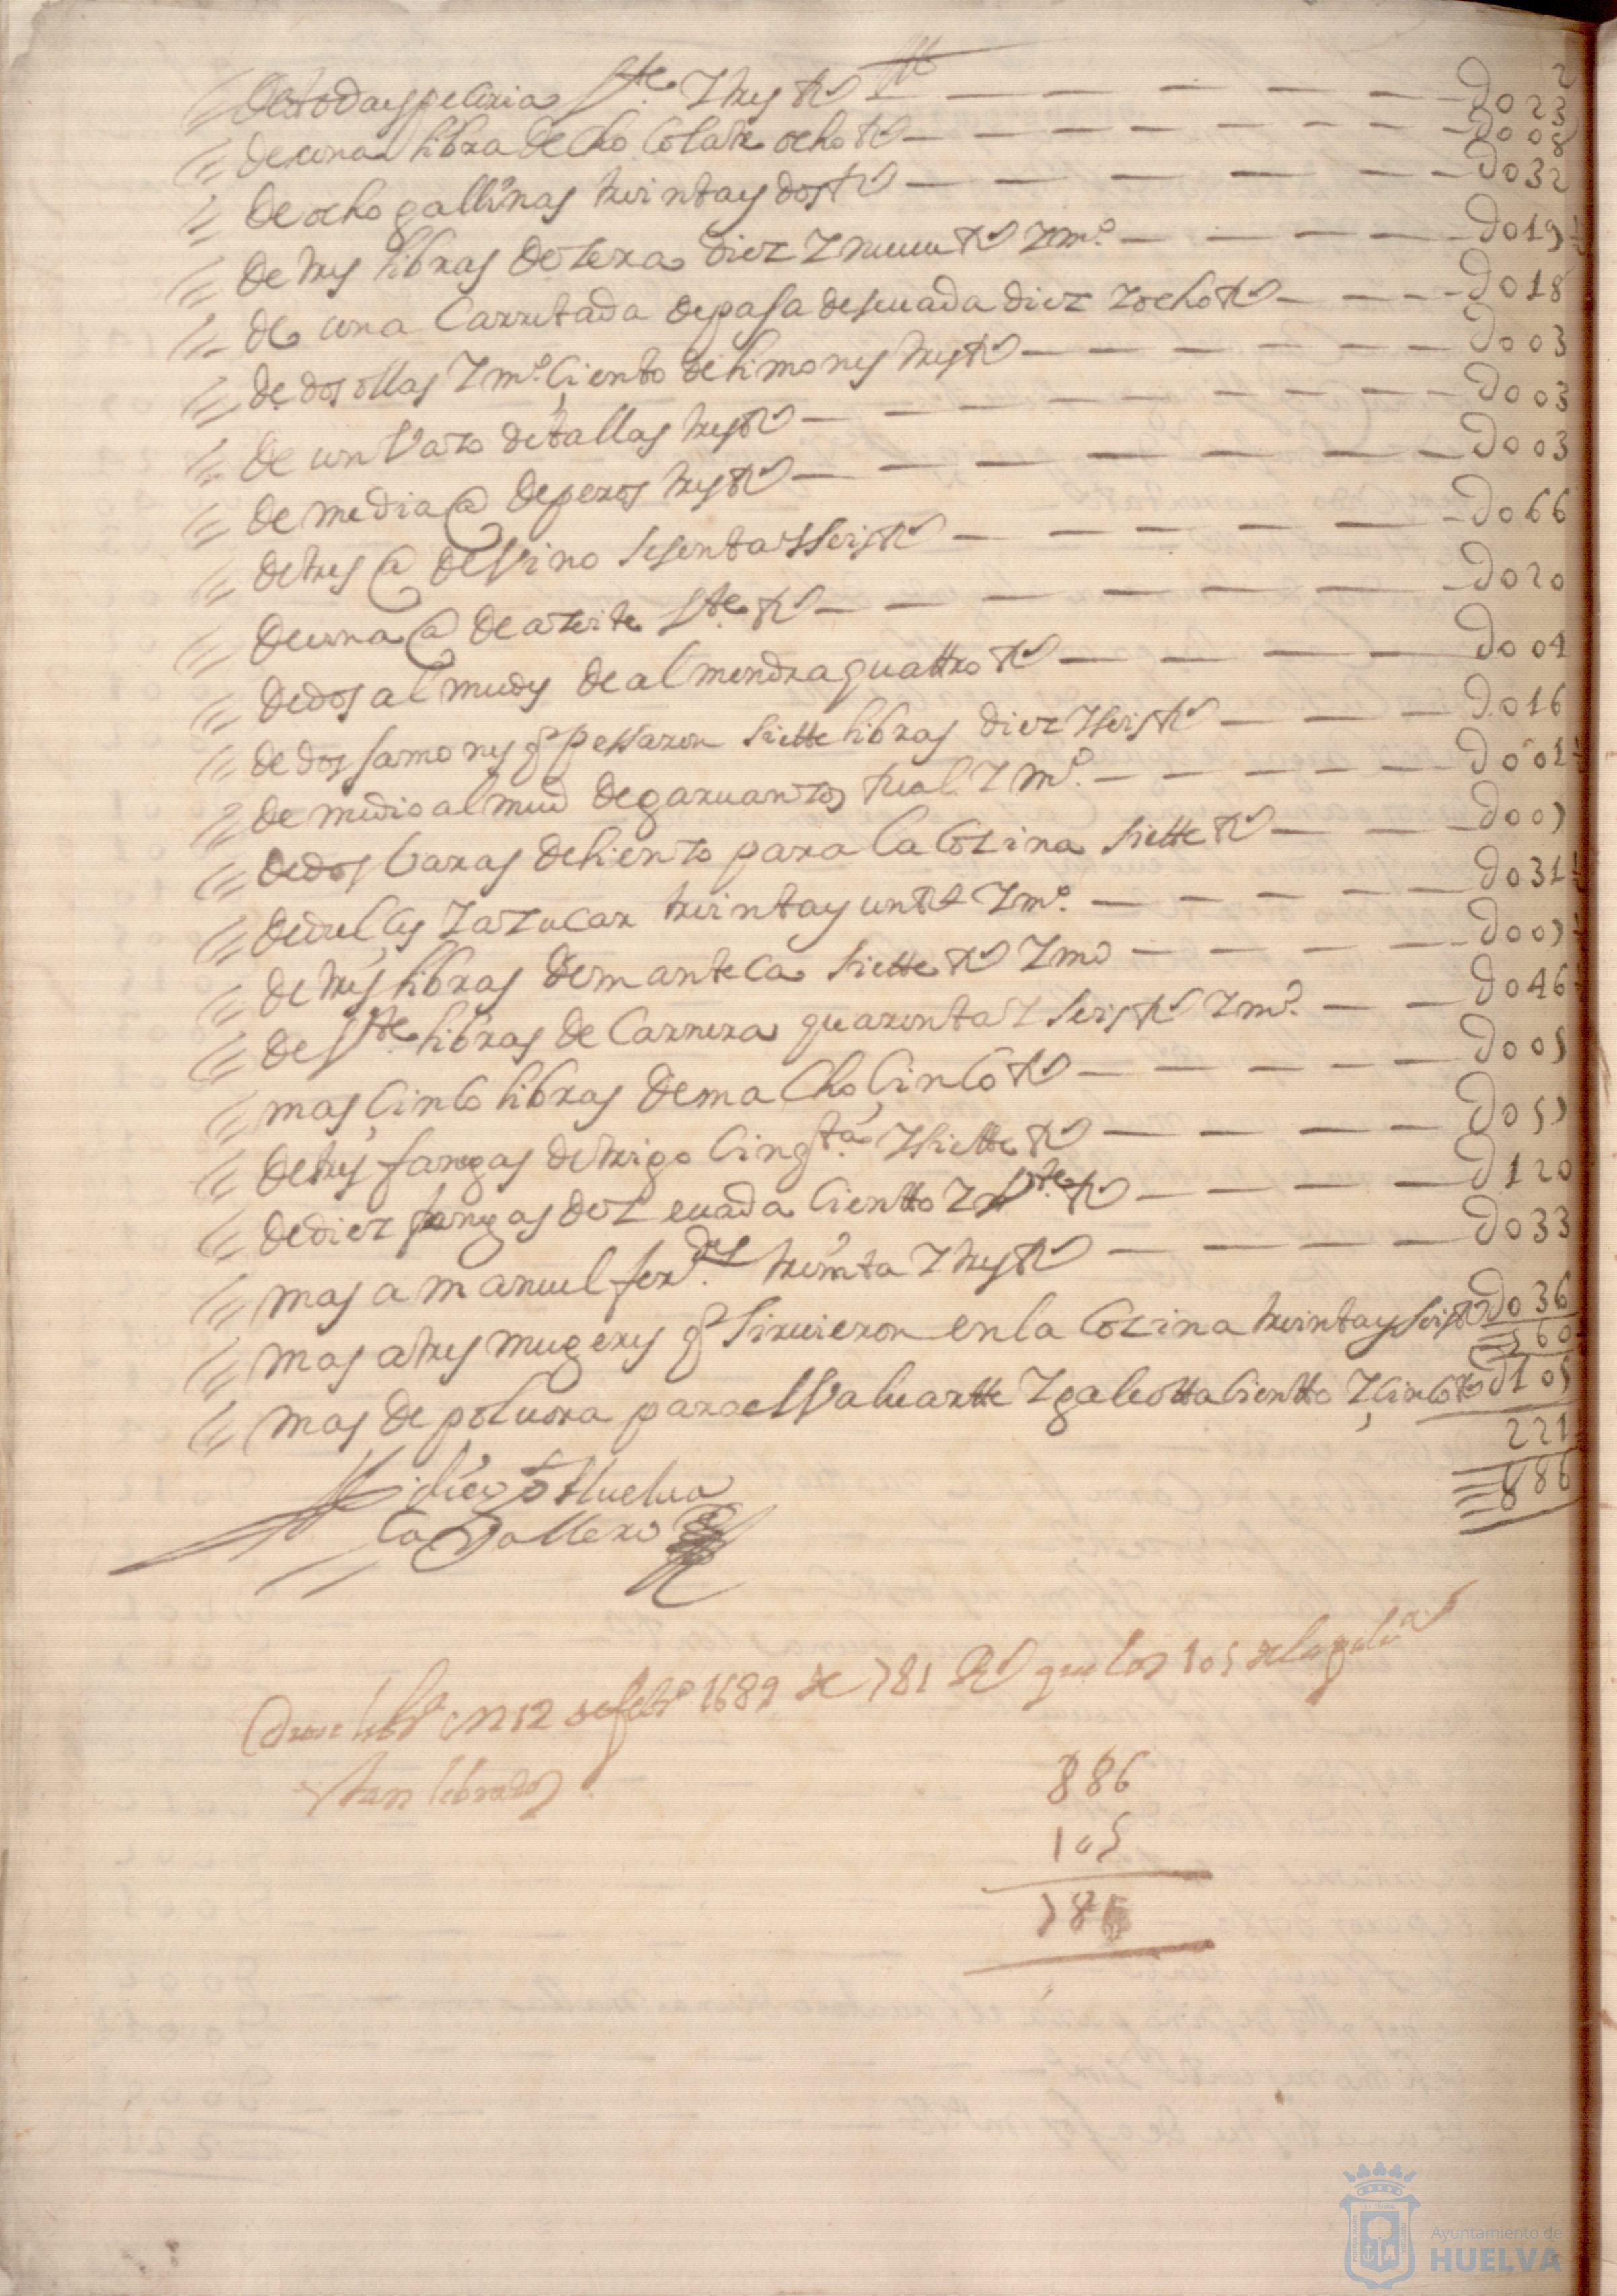 de toda espeçeria Vte. y tres Rs — — — — — — D023
de una libra de chocolate ocho Rs — — — — — — D008
de ocho gallinas treinta y dos Rs — — — — — — D032
de tres libras de sera diez y nueue Rs y mo. — — — — D019 ½
de una carretada de paja de seuada diez y ocho Rs — — — D018
de dos ollas y mo. çiento de limones tres Rs — — — — D003
de un Vazo de tallas tres Rs — — — — — — D003
de media @ de peros tres Rs — — — — — — D003
de tres @ de Vino sesenta y seis Rs — — — — — D066
de una @ de azeite Vte. Rs — — — — — — D020
de dos almudes de almendra quattro Rs — — — — D004
de dos jamones q pessaron siette libras diez y seis Rs — — — D016
de medio almud de garuanzos real y mo. — — — — D001 ½
de dos baras de lienzo para la cozina siette Rs — — — D007
de dulçes y azucar treinta y un Rs y mo. — — — — D031 ½
de tres libras de manteca siette Rs y mo — — — — D007 ½
de Vte. libras de carnera quarenta y seis Rs y mo. — — D046 ½
mas çinco libras de macho çinco Rs — — — — — D005
de tres fanegas de trigo cinqta. y siette Rs — — — — D057
de diez fanegas de zeuada cientto y Vte Rs — — — — D120
mas a manuel ferdes. treinta y tres Rs — — — — D033
mas a tres mugeres q siruieron en la cozina treinta y seis Rs D036
560
mas de poluora para el Valuartte y galeotta cientto y çinco Rs D105
221
886
diego de Huelua
Cavallero
en 12 de febro 1689 de 781 Rs que los 105 de la
estan librados.
886
105
781
Ayuntamiento de
HUELVA